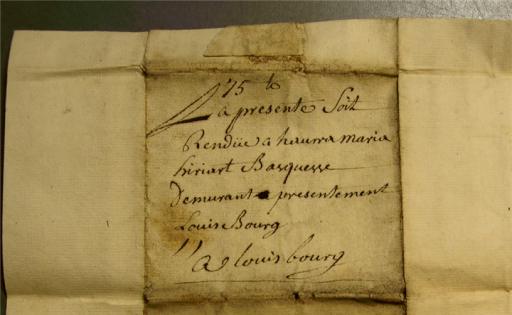 75 tt
La presente soit
Rendüe a haurra maria
hiriart Basquesse
Demurant a presentement
Louis Bourg
a louisbourg